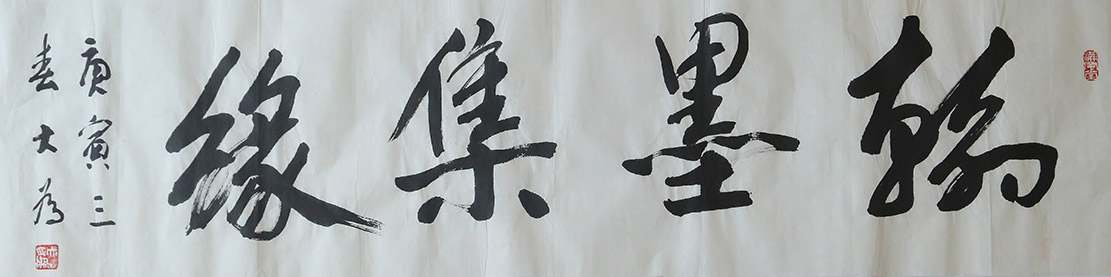 翰墨集緣
庚寅三
春大為